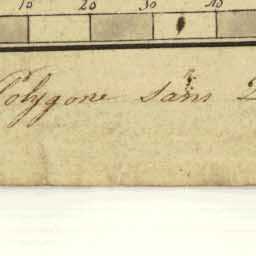 10 20 30 40
Polygone sans